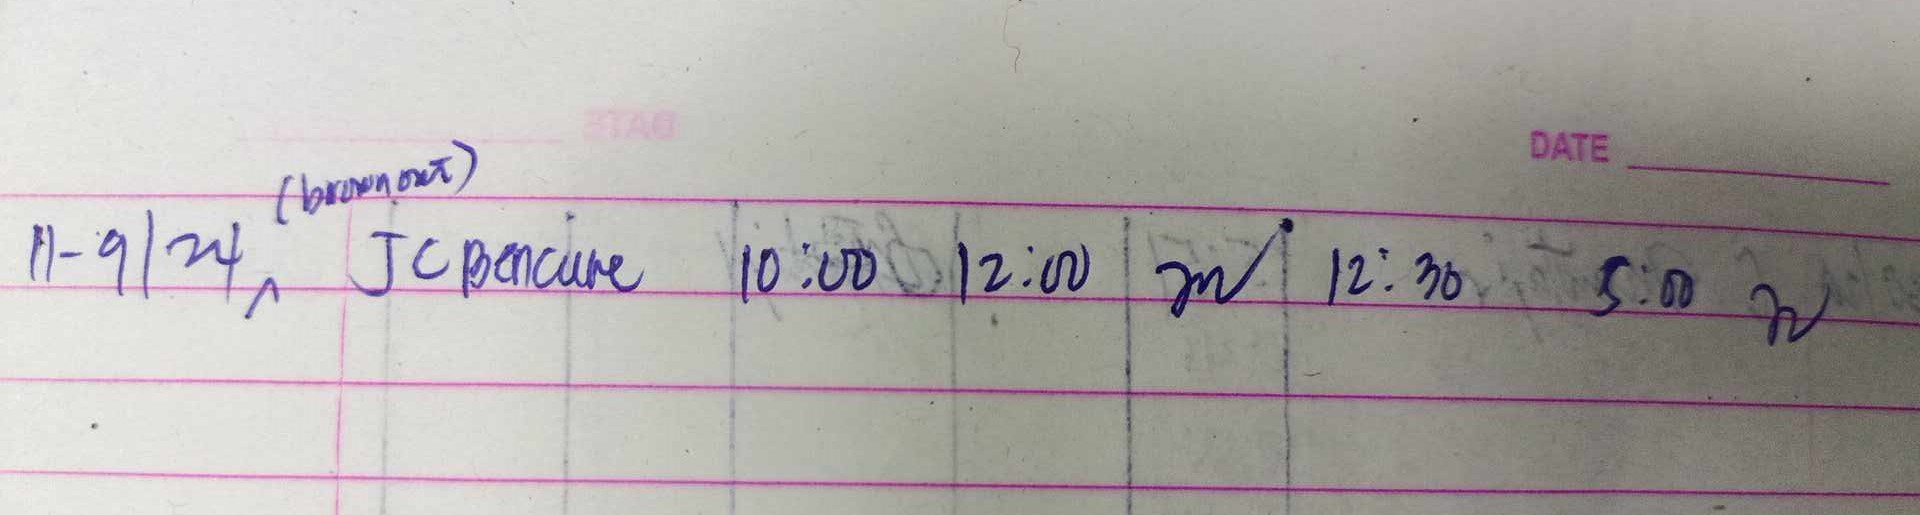 DATE
(brownout)
11-9/24, JC Bencure 10:00 12:00 12:30 5:00